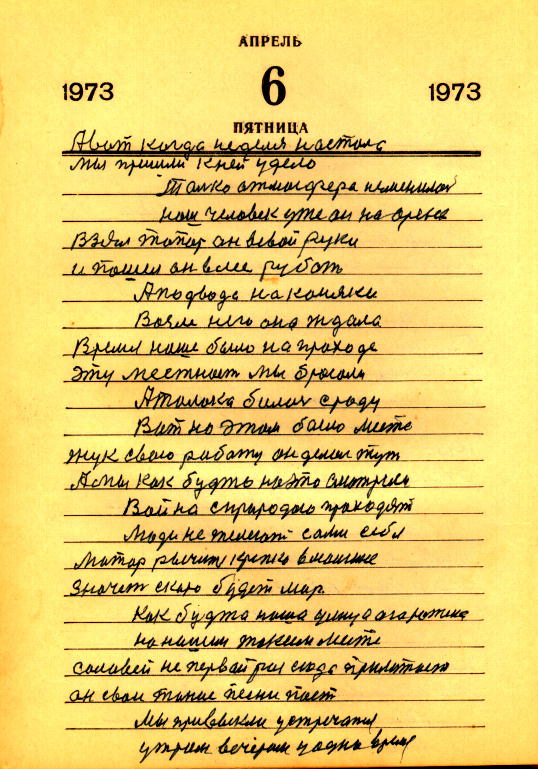 АПРЕЛЬ
1973 6 1973
ПЯТНИЦА
Авот когда неделя настола
мы пришли кней удело
толко атмосфера неменилой
наш человек уже он на арена
Взял топор он вевой руки
и пошел он влес рубать
Аподвода на коняки
Возле него она ждала
Время наше было на проходе
эту местност мы бросали
Атолока билас сраду
Вот на этом было месте
жук свою работу он делал тут
Амы как будть на это смотрели
Война сприродою проходят
люди не желают сами себя
Матор рычить крепко вмашине
значет скоро будет мар
Как буджта наша улица агарожена
на нашим таким месте
саловей не первай раз сюда прилитает
он свои тание песни пает
Мы привыкли устречатя
утрам вечерам у адно время